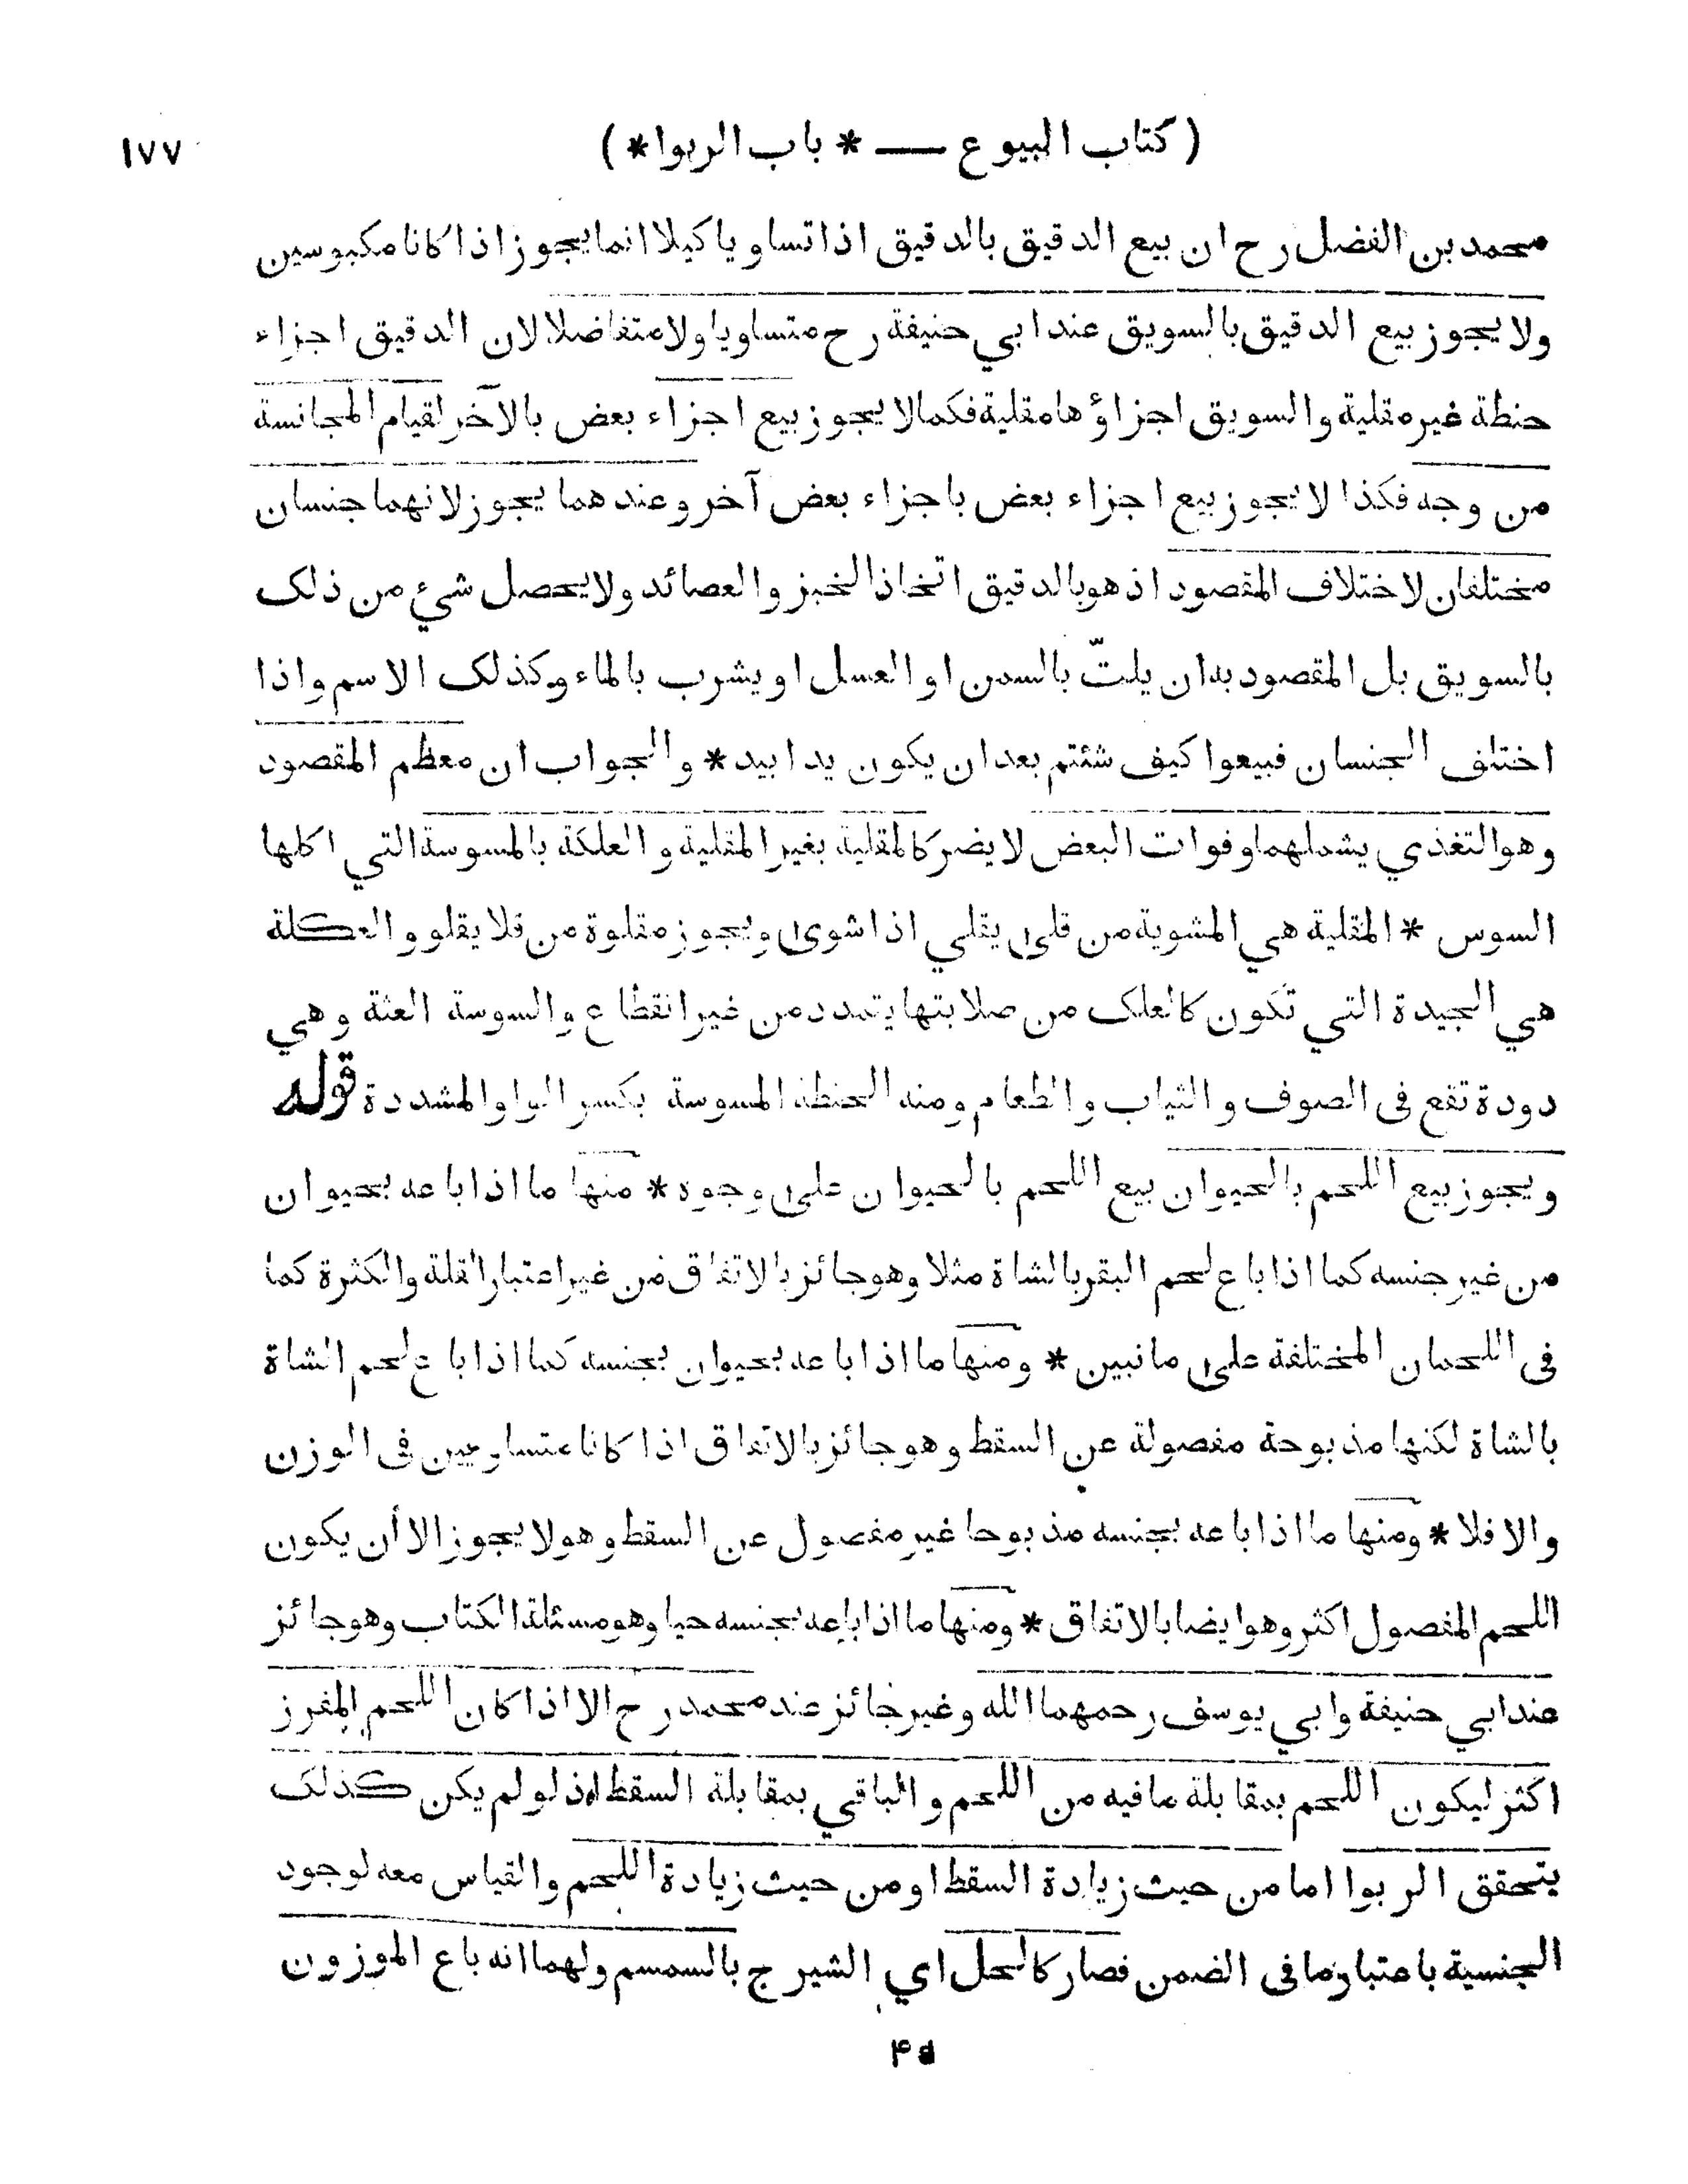 (كتاب البيوع — * باب الربوا *) ١٧٧
محمد بن الفضل رح ان بيع الدقيق بالدقيق اذا تساويا كيلا انما يجوز اذا كانا مكبوسين
ولا يجوز بيع الدقيق بالسويق عند ابي حنيفة رح متساويا ولا متفاضلا لان الدقيق اجزاء
حنطة غير مقلية والسويق اجزاؤها مقلية فكما لا يجوز بيع اجزاء بعض بالآخر لقيام المجانسة
من وجه فكذا لا يجوز بيع اجزاء بعض باجزاء بعض آخر وعندهما يجوز لانهما جنسان
مختلفان لاختلاف المقصود اذ هو بالدقيق اتخاذ الخبز والعصائد ولا يحصل شئ من ذلك
بالسويق بل المقصود به ان يلتّ بالسمن او العسل او يشرب بالماء وكذلك الاسم واذا
اختلف الجنسان فبيعوا كيف شئتم بعد ان يكون يدا بيد * والجواب ان معظم المقصود
وهو التغذي يشملهما وفوات البعض لا يضر كالمقلية بغير المقلية والعلكة بالمسوسة التي اكلها
السوس * المقلية هي المشوية من قلى يقلي اذا شوى ويجوز مقلوة من قلا يقلو والعكلة
هي الجيدة التي تكون كالعلك من صلابتها يتمدد من غير انقطاع والسوسة العثة وهي
دودة تقع فى الصوف والثياب والطعام ومنه الحنطة المسوسة بكسر الواو المشددة قوله
ويجوز بيع اللحم بالحيوان بيع اللحم بالحيوان على وجوه * منها ما اذا باعه بحيوان
من غير جنسه كما اذا باع لحم البقر بالشاة مثلا وهو جائز بالاتفاق من غير اعتبار القلة والكثرة كما
فى اللحمان المختلفة على ما نبين * ومنها ما اذا باعه بحيوان بجنسه كما اذا باع لحم الشاة
بالشاة لكنها مذبوحة مفصولة عن السقط وهو جائز بالاتفاق اذا كانا متساويين فى الوزن
والا فلا * ومنها ما اذا باعه بجنسه مذبوحا غير مفصول عن السقط وهو لا يجوز الا أن يكون
اللحم المفصول اكثر وهو ايضا بالاتفاق * ومنها ما اذا باعه بجنسه حيا وهو مسئلة الكتاب وهو جائز
عند ابي حنيفة وابي يوسف رحمهما الله وغير جائز عند محمد رح الا اذا كان اللحم المفرز
اكثر ليكون اللحم بمقابلة ما فيه من اللحم والباقي بمقابلة السقط اذ لو لم يكن كذلك
يتحقق الربوا اما من حيث زيادة السقط او من حيث زيادة اللحم والقياس معه لوجود
الجنسية باعتبار ما فى الضمن فصار كالحل اي الشيرج بالسمسم ولهما انه باع الموزون